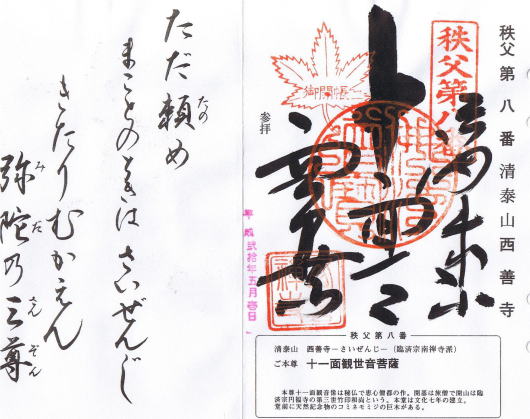 秩父第八番清泰山西善寺
秩父第八
御開帳
参拝
西善寺
平成弐拾年五月壱日
秩父第八番
清泰山 西善寺―さいぜんじ―(臨済宗南禅寺派)
ご本尊 十一面観世音菩薩
本尊十一面観音像は秘仏で恵心僧都の作。開基は旅僧で開山は臨
済宗円福寺の第三世竹印和尚という。本堂は文化七年の建立。
堂前に天然記念物のコミネモミジの巨木がある。
ただ頼め
たの
まことのときは さいぜんじ
きたりむかえん
弥陀の三尊
みだ さんぞん